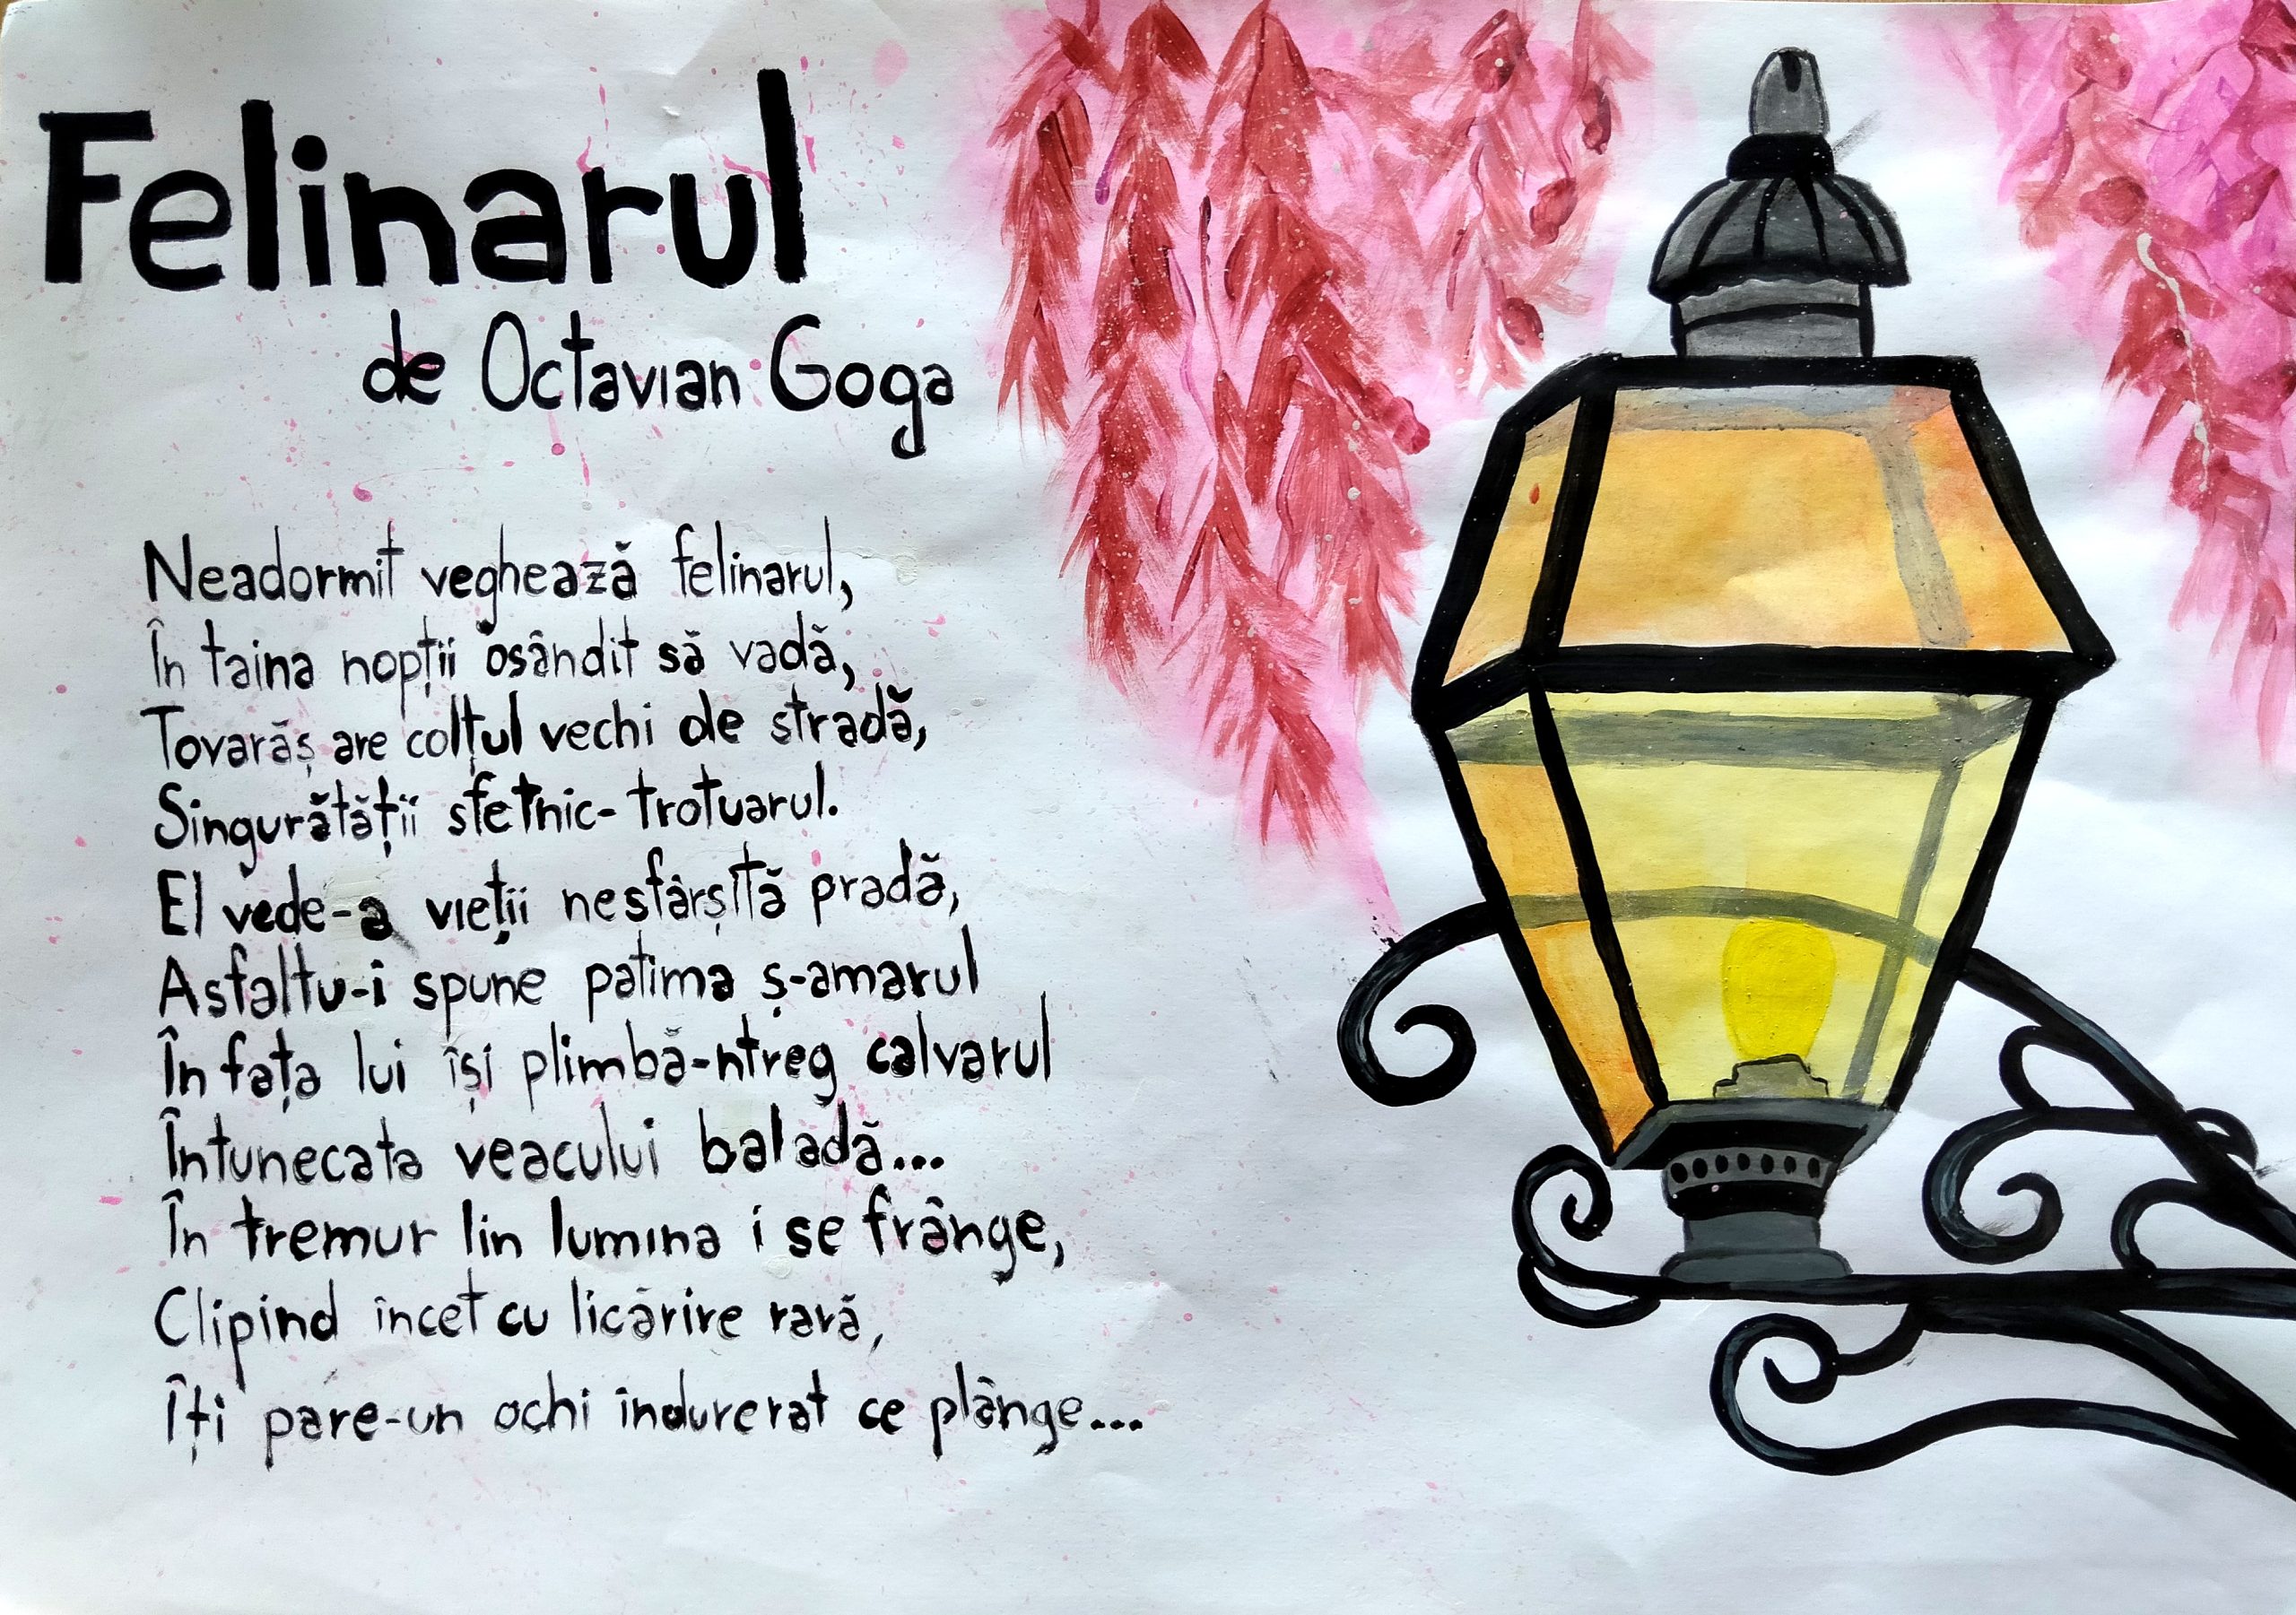 Felinarul
de Octavian Goga
Neadormit veghează felinarul,
În taina nopții osândit să vadă,
Tovarăș are colțul vechi de stradă,
Singurătății sfetnic- trotuarul.
El vede-a vieții nesfârșită pradă,
Asfaltu-i spune patima ș-amarul
În fața lui își plimbă-ntreg calvarul
Întunecata veacului baladă...
În tremur lin lumina i se frânge,
Clipind încet cu licărire rară,
Îți pare-un ochi îndurerat ce plânge...